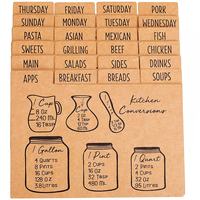 THURSDAY FRIDAY SATURDAY WEDNESDAY
SUNDAY MONDAY TUESDAY PORK
PASTA ASIAN MEXICAN FISH
SWEETS GRILLING BEEF CHICKEN
MAIN SALADS SIDES DRINKS
APPS BREAKFAST BREADS SOUPS
Kitchen
Conversions
1 Cup
8 oz
240 mL
16 Tbsp
1 Gallon
4 Quarts
8 Pints
16 Cups
128 oz
3.8 Liters
1 Pint
2 Cups
16 oz
32 Tbsp
480 mL
1 Quart
2 Pints
4 Cups
32 oz
.95 Liters